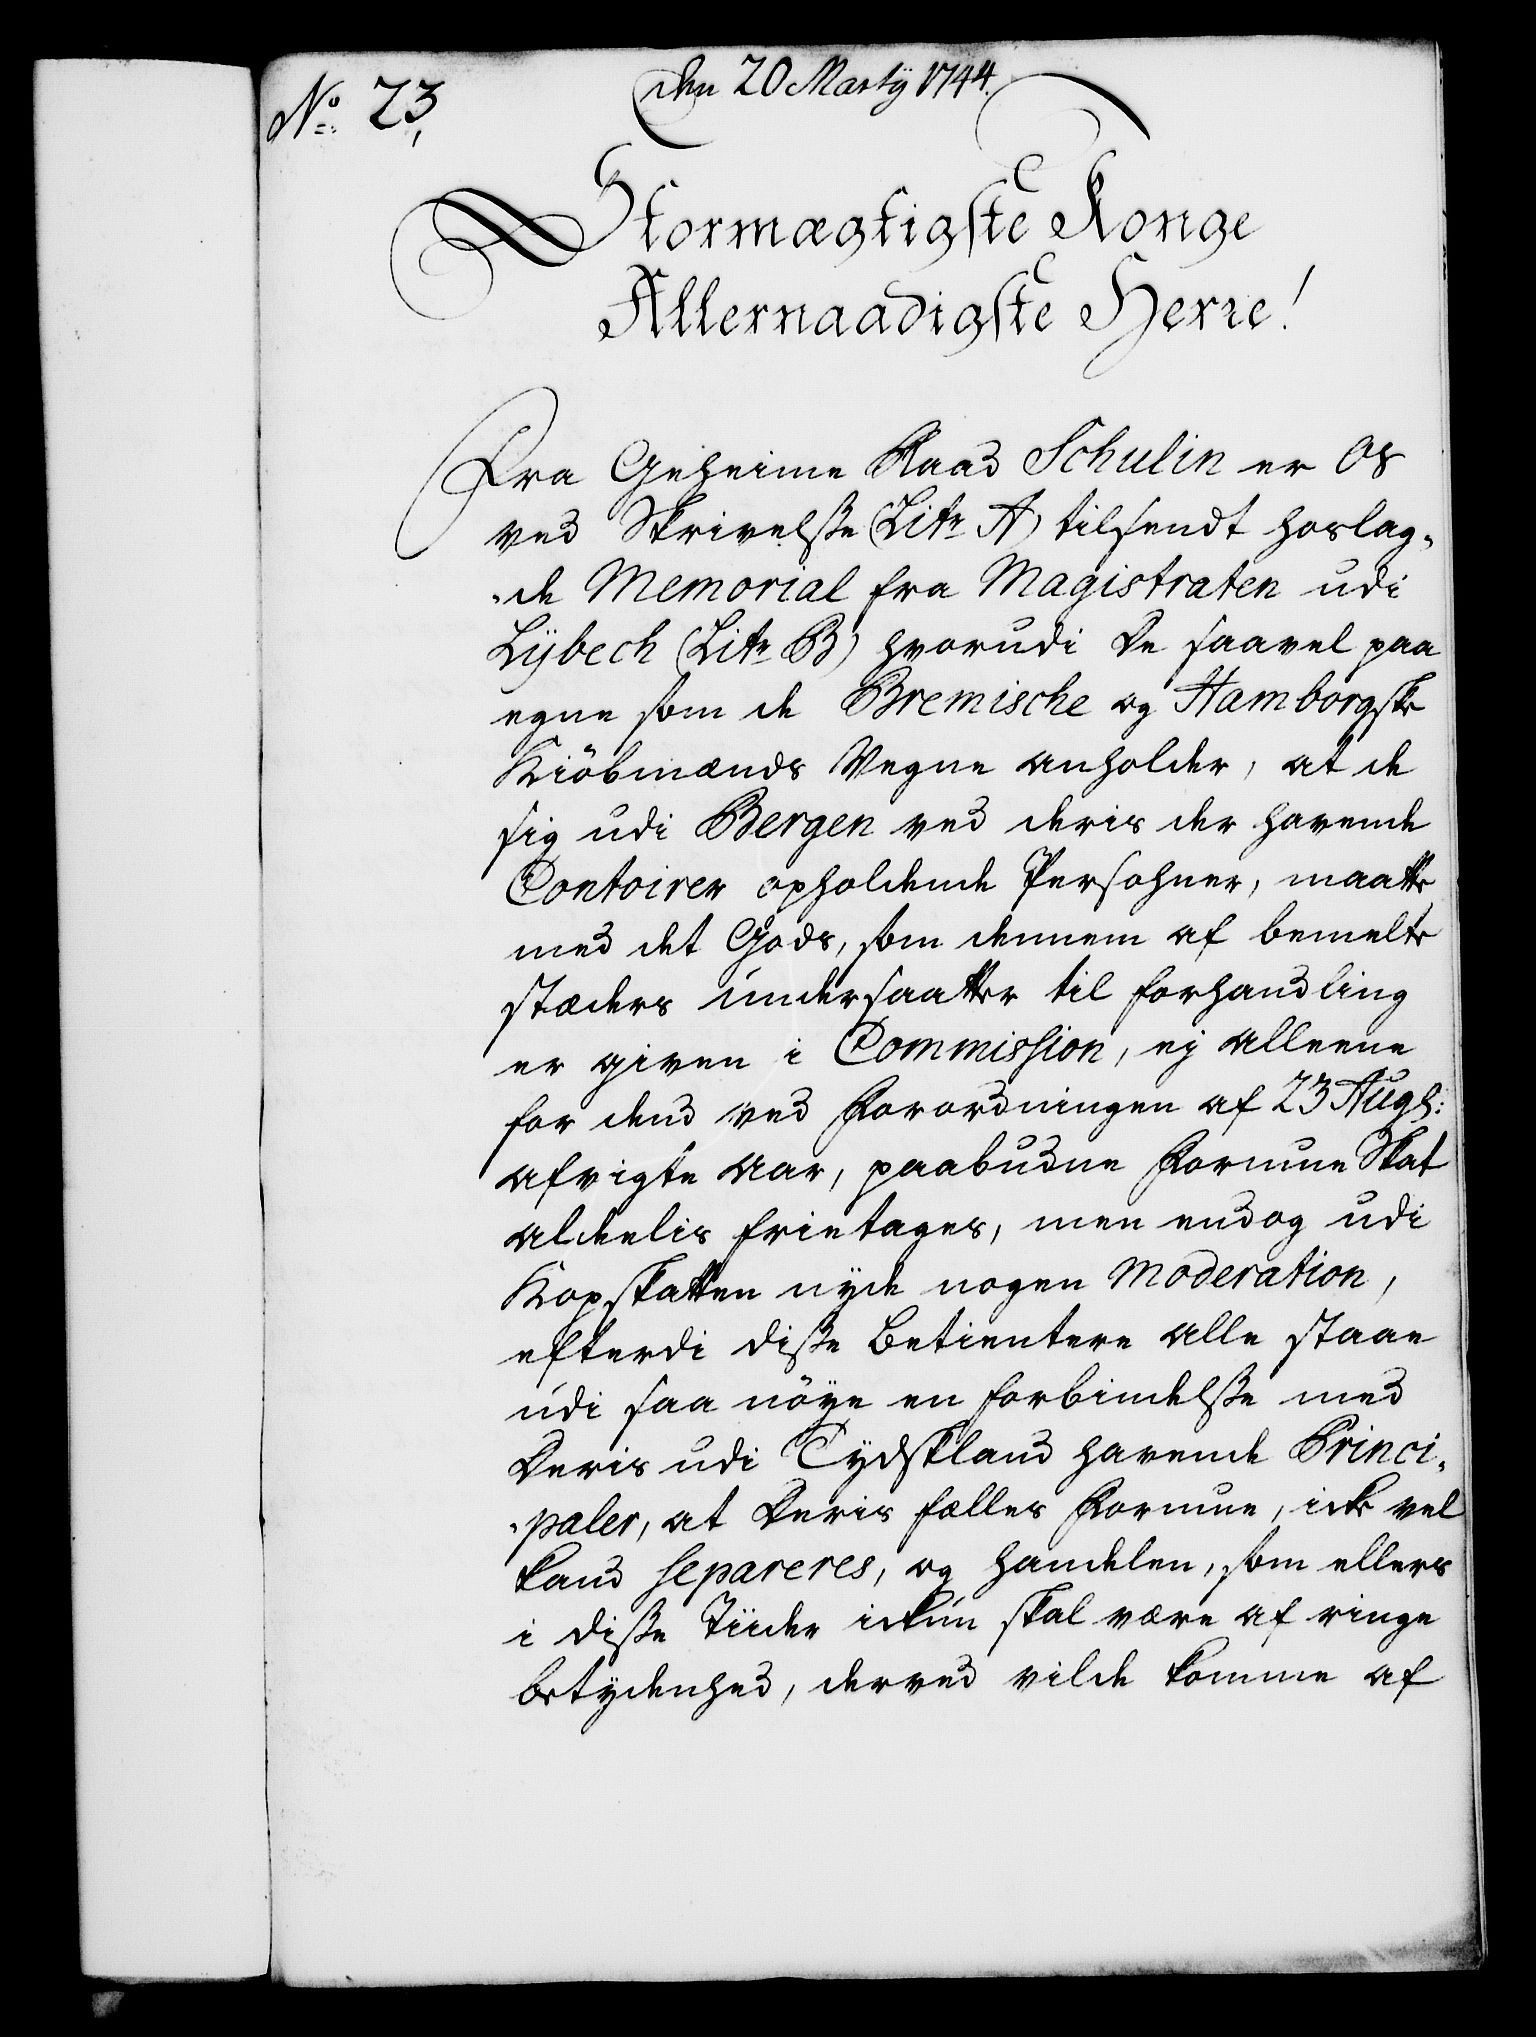 No 23,
den 20 Martÿ 1744.
Stormægtigste Konge
Allernaadigste Herre!
Fra Geheime Raad Schulin er os
ved Skrivelsße (Litr A) tilsendt hoslag„
„de Memorial fra Magistraten udi
Lÿbech (Litr B) hvorudi De saavel paa
egne som de Bremische og Hamborgske
Kiöbmænds Vegne anholder, at de
sig udi Bergen ved deris der havende
Contoirer opholdende Persohner, maatte
med det Gods, som dennem af bemelte
stæders undersaatter til forhandling
er given i Commission, ej alleene
for dend ved Forordningen af 23 Aug:
afvigte aar, paabudne Formue Skat
aldeelis frietages, men endog udi
Kopskatten nyde nogen Moderation,
efterdi disse Betientere alle staae
udi saa nöye en forbindelsße med
Deris udi Tydskland havende Princi„
„paler, at Deris fælles Formue, icke vel
kand separeres, og handelen, som ellers
i disße Tiider ickun skal være af ringe
betydenhed, derved vilde komme af